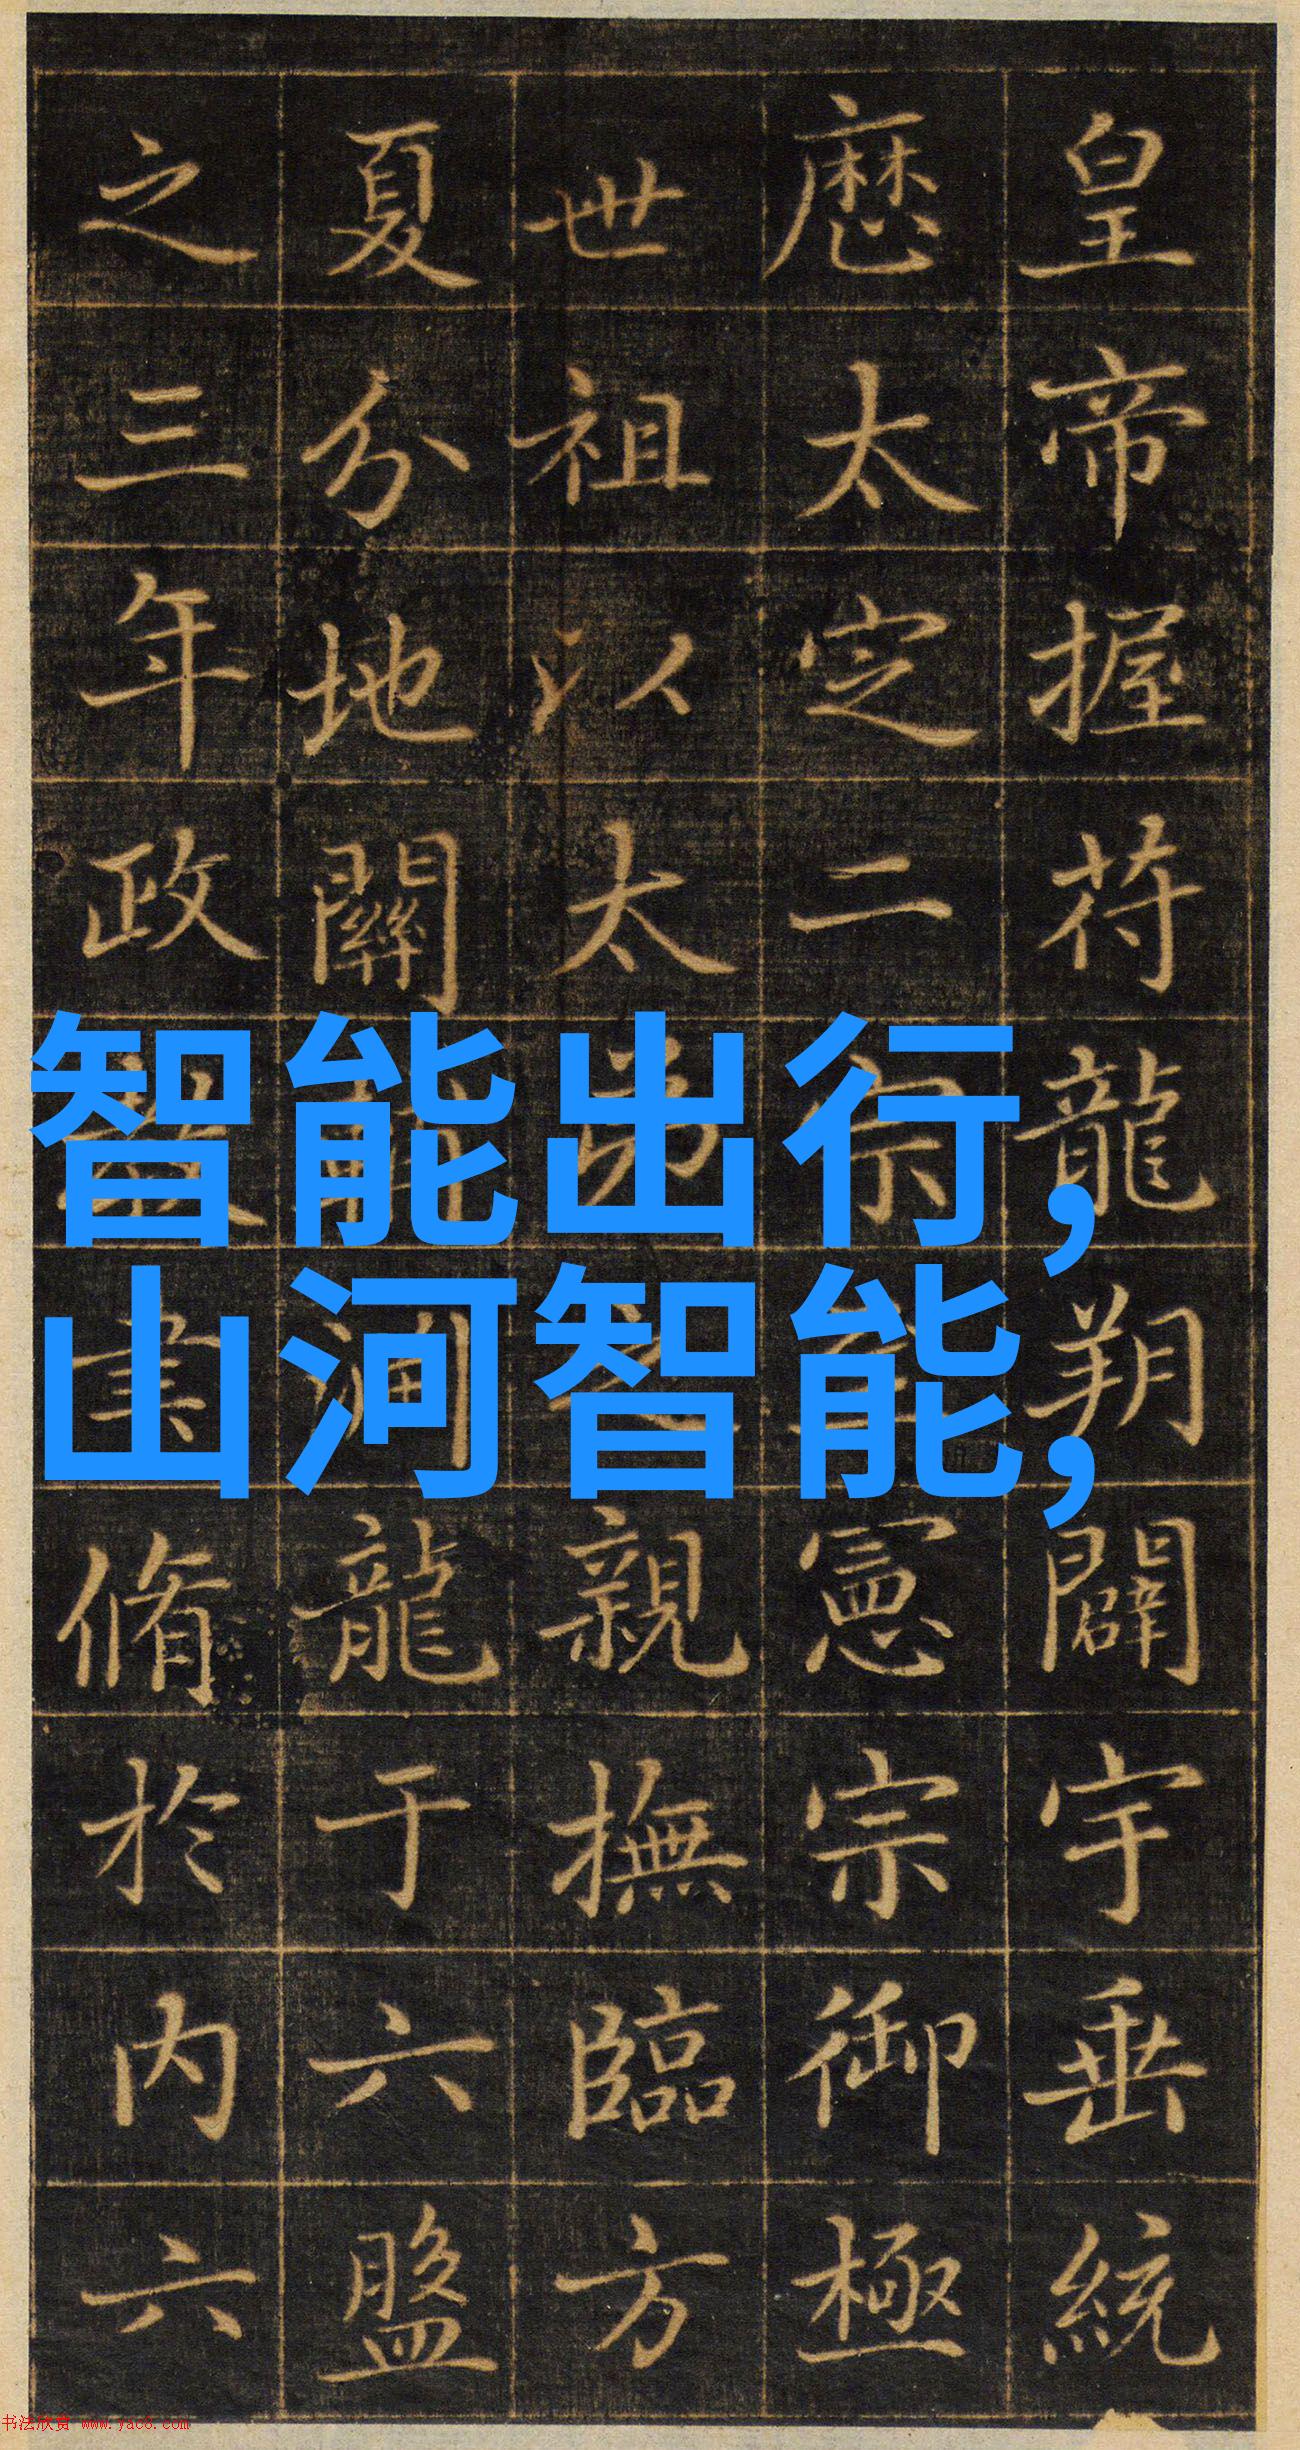 皇帝握符龍朔闢宇垂統
厯太定二宗至憲宗御極
世祖以太弟之親撫臨方
夏分地關龍于六盤
之三年政脩於内六
智能出行,
山河智能,
书法欣赏 www.yac8.com